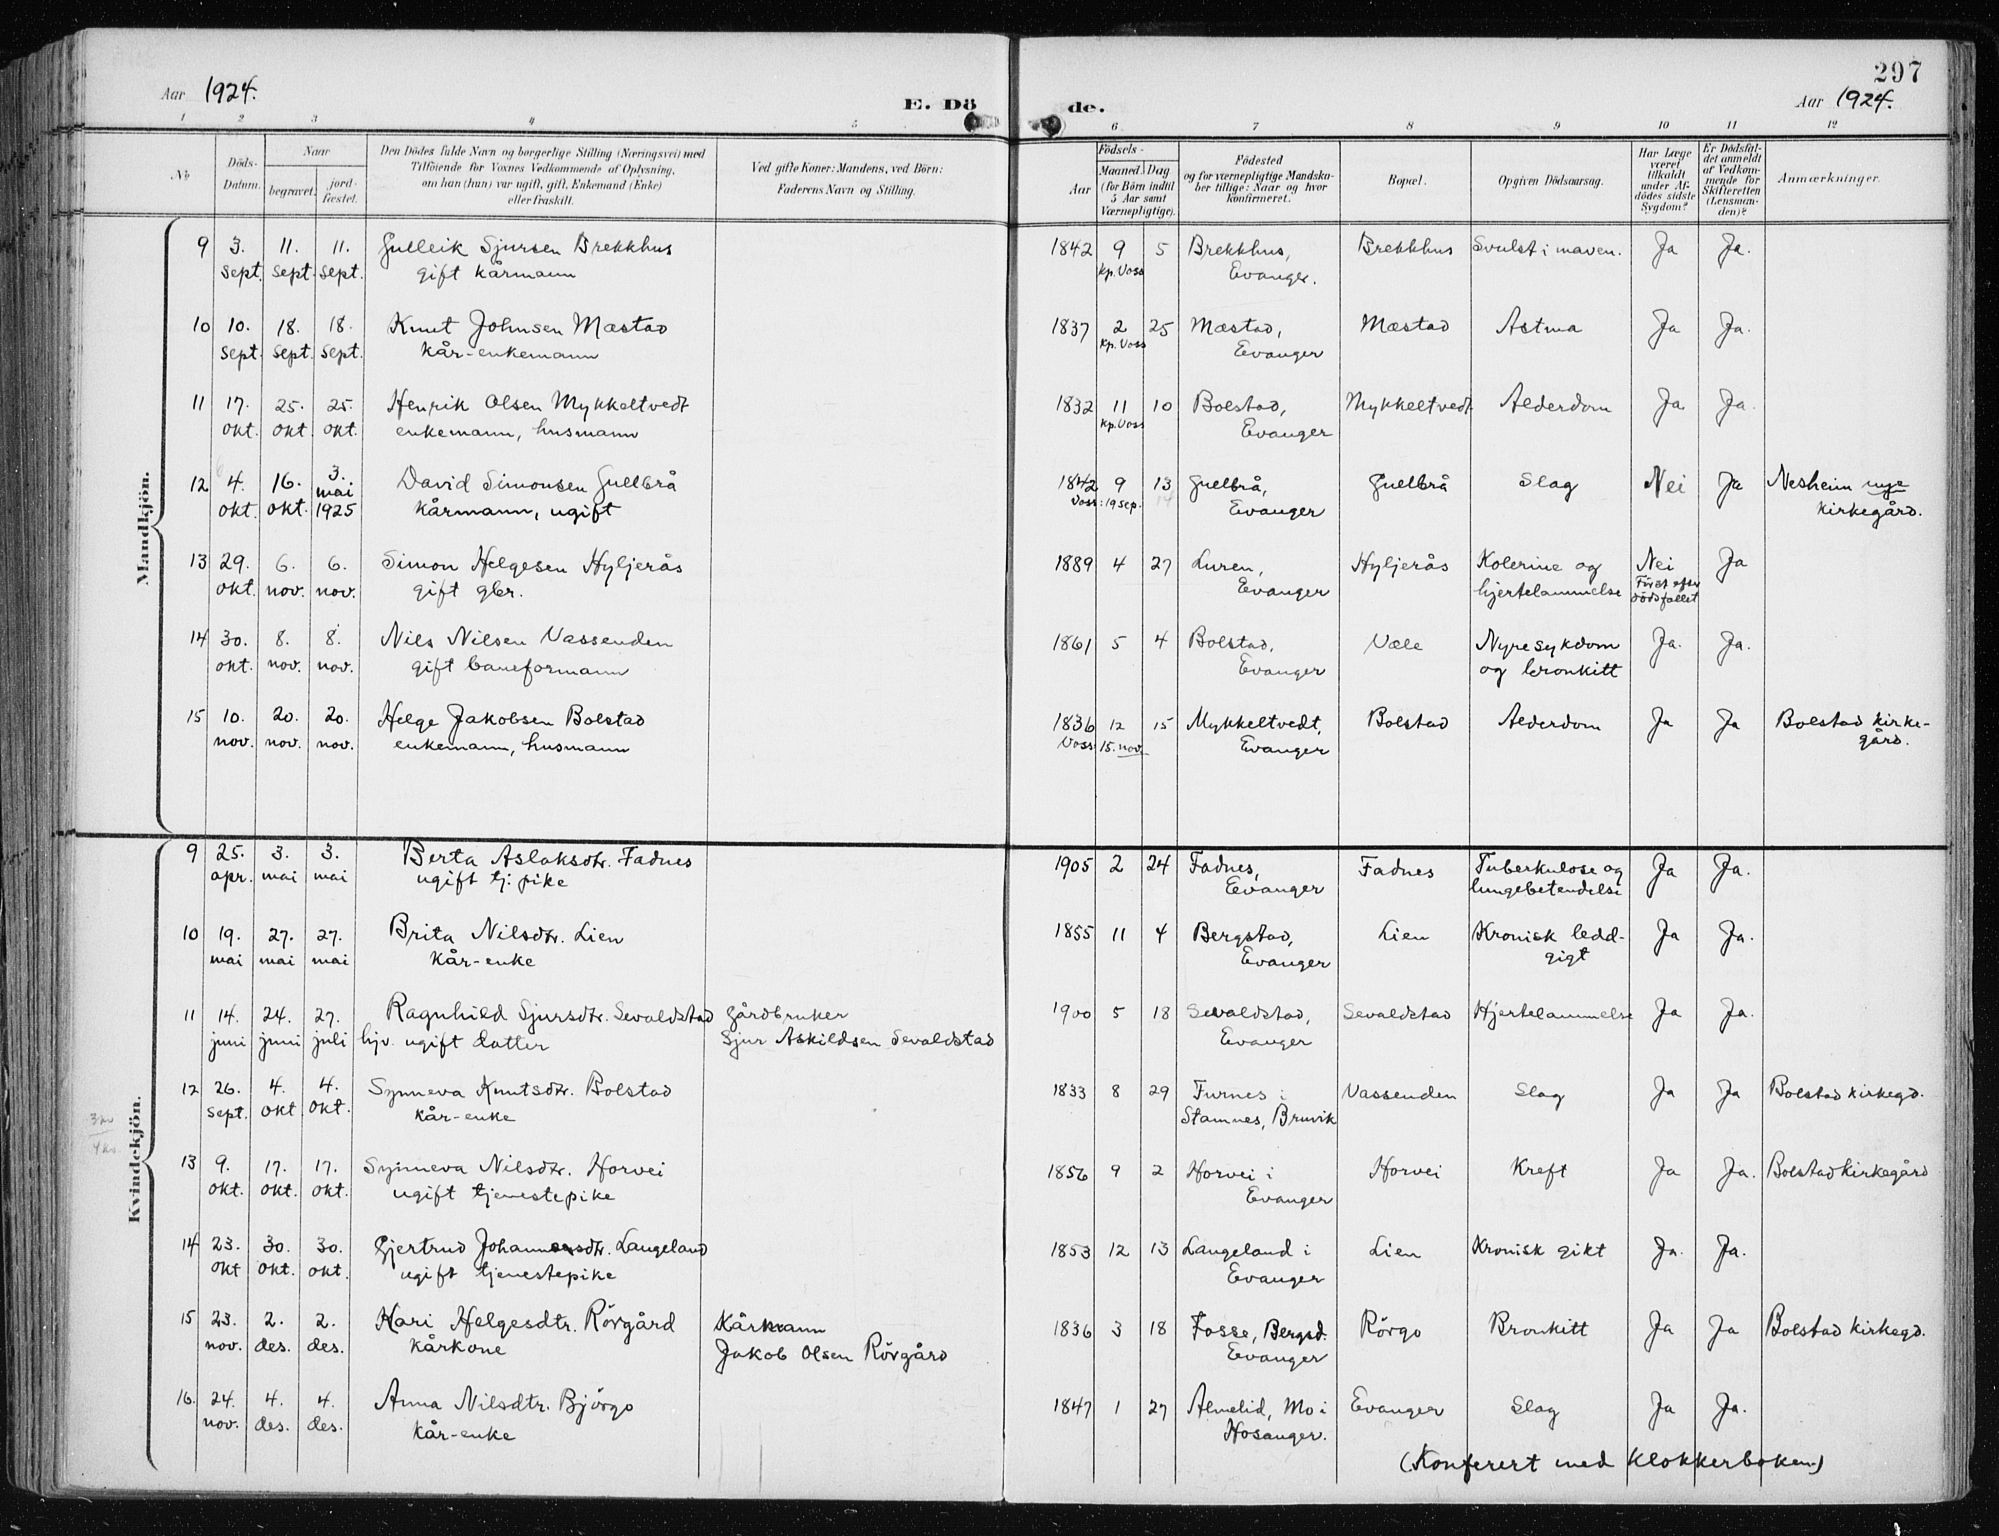 297
Aar 1924.
E. Dö de.
Aar 1924.
1 2 3 4 5 6 7 8 9 10 11 12
No
Döds-
Datum.
Naar
begravet.
jord-
fæstet.
Den Dödes fulde Navn og borgerlige Stilling (Næringsvei) med
Tilföiende för Voxnes Vedkommende af Oplysning,
om han (hun) var ugift, gift, Enkemand (Enke)
eller fraskilt.
Ved gifte Koner: Mandens, ved Börn:
Faderens Navn og Stilling.
Födsels-
Aar
Maaned. Dag
(for Börn indtil
5 Aar samt
Værnepligtige).
Födested
og for værnepligtige Mandska-
ber tillige: Naar og hvor
konfirmeret.
Bopæl.
Opgiven Dödsaarsag.
Har Læge
været
tilkaldt
under Af-
dödes sidste
Sygdom?
Er Dödsfal-
det anmeldt
af Vedkom-
mende for
Skifteretten
(Lensman-
den)?
Anmærkninger.
Mandkjön.
9 3. 11. 11. Gulleik Sjursen Brekkhus 1842 9 5 Brekkhus, Brekkhus Svulst i maven. Ja Ja.
sept. sept. sept. gift kårmann kp. Voss Evanger.
10 10. 18. 18. Knut Johnsen Mæstad 1837 2 25 Mæstad, Mæstad Astma Ja Ja.
sept. sept. sept. kår-enkemann kp. Voss Evanger
11 17. 25. 25. Henrik Olsen Mykkeltvedt 1832 11 10 Bolstad, Mykkeltvedt Alderdom Ja Ja.
okt. okt. okt. enkemann, husmann kp. Voss Evanger
12 4. 16. 3. David Simonsen Gullbrå 1842 9 13 Gullbrå, Gullbrå Slag Nei Ja Nesheim nye
okt. okt. mai 1925 kårmann, ugift Voss: 19 sep. Evanger kirkegård.
13 29. 6. 6. Simon Helgesen Hyljerås 1889 4 27 Luren, Hyljerås Kolerine og Nei Ja
okt. nov. nov. gift gbr. Evanger hjertelammelse Först efter
dödsfallet
14 30. 8. 8. Nils Nilsen Vassenden 1861 5 4 Bolstad, Væle Nyresykdom Ja. Ja.
okt. nov. nov. gift baneformann Evanger og bronkitt
15 10. 20. 20. Helge Jakobsen Bolstad 1836 12 15 Mykkeltvedt, Bolstad Alderdom Ja Ja Bolstad kirke-
nov. nov. nov. enkemann, husmann Voss 15. nov. Evanger gård.
Kvindekjön.
9 25. 3. 3. Berta Aslaksdtr. Fadnes 1905 2 24 Fadnes, Fadnes Tuberkulose og Ja Ja.
apr. mai mai ugift tj. pike Evanger lungebetendelse
10 19. 27. 27. Brita Nilsdtr. Lien 1855 11 4 Bergstad, Lien Kronisk ledd- Ja Ja.
mai mai mai kår-enke Evanger gigt
11 14. 24. 27. Ragnhild Sjursdtr. Sevaldstad Gårdbruker 1900 5 18 Sevaldstad, Sevaldstad Hjertelammelse Ja Ja.
juni juni juli hjv. ugift datter Sjur Askildsen Sevaldstad Evanger
12 26. 4. 4. Synneva Knutsdtr. Bolstad 1833 8 29 Furnes i Vassenden Slag Ja Ja Bolstad kirkegd.
sept. okt okt. kår-enke Stamnes, Bruvik
13 9. 17. 17. Synneva Nilsdtr. Horvei 1856 9 2 Horvei i Horvei Kreft Ja Ja. Bolstad kirkegård
okt. okt. okt. ugift tjenestepike Evanger
14 23. 30. 30. Gjertrud Johannesdtr. Langeland 1853 12 13 Langeland i Lien Kronisk gikt Ja. Ja.
okt okt. okt. ugift tjenestepike Evanger
15 23. 2. 2. Kari Helgesdtr. Rörgård Kårmann 1836 3 18 Fosse, Bergsd. Rörgo Bronkitt Ja Ja Bolstad kirkegd.
nov. des. des. kårkone Jakob Olsen Rörgård Evanger
16. 24. 4. 4. Anna Nilsdtr. Björgo 1847 1 27 Almelid, Mo i Evanger Slag Ja Ja.
nov. des. des. kår-enke Hosanger.
(Konferert med klokkerboken.)